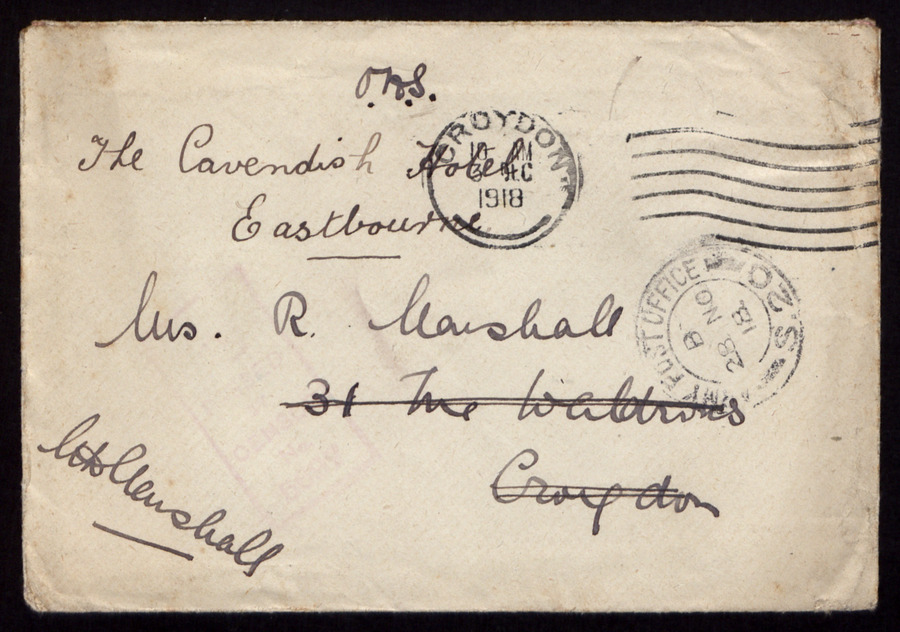 O.A.S.
The Cavendish Hotel
Eastbourne
CROYDON
1918
ARMY POST OFFICE
S.20
B
28 NO
18
Mrs. R. Marshall
31 The Waldrons
Croydon
Marshall